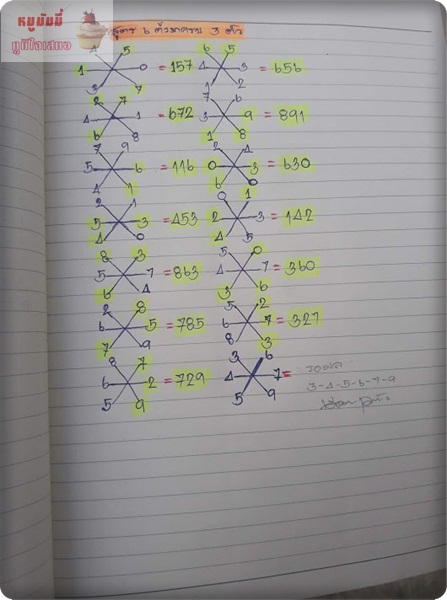 หมูมัมมี่
ภูมิใจเสมอ
สูตร 6 ตัวมาครบ 3 ตัว
5 6 5
1 0 = 157 4 3 = 656
3 7 1
2 7 7 6
4 1 = 672 3 9 = 891
6 8 1 8
7 9 2 4
5 6 = 116 0 3 = 630
4 1 6 0
2 1 0 1
5 3 = 453 2 3 = 142
4 0 4 5
8 3 5 0
5 7 = 863 4 7 = 360
6 4 3 6
2 8 5 2
6 5 = 785 6 7 = 327
7 9 8 3
8 7 3 6
6 2 = 729 4 7 =
5 9 5 9
3-4-5-6-7-9